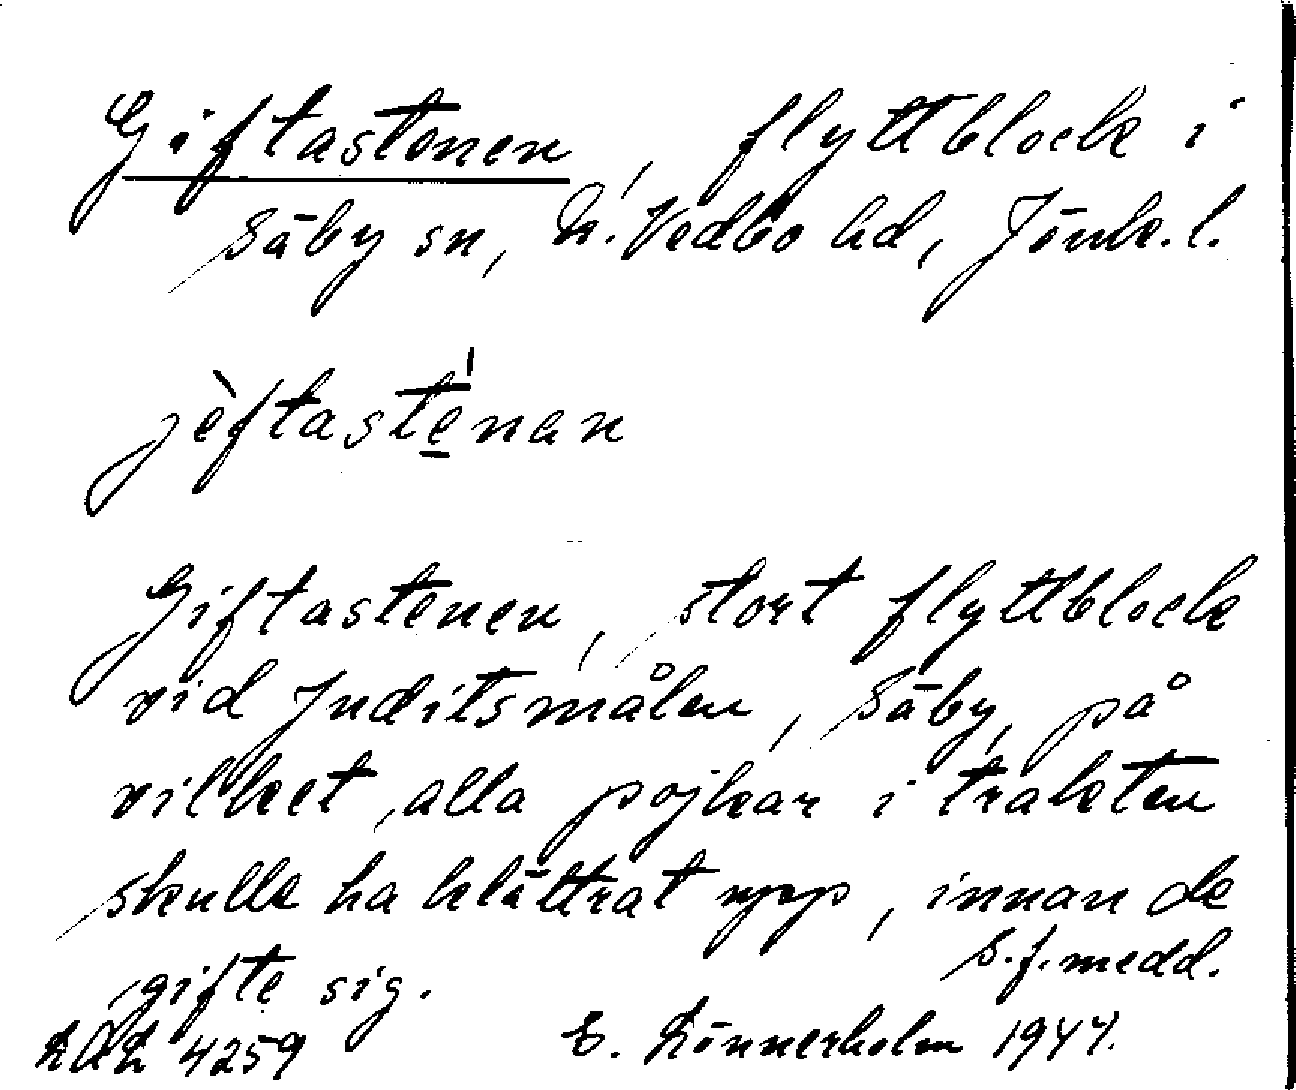 Giftastenen, flyttblock i
Säby sn, N. Vedbo hd, Jönk. l.
jèftasté̱nan
Giftastenen, stort flyttblock
vid Juditsmålen, Säby, på
vilket alla pojkar i trakten
skulle ha klättrat upp, innan de
gifte sig.
s.f. medd.
4259 E. Lönnerholm 1944.